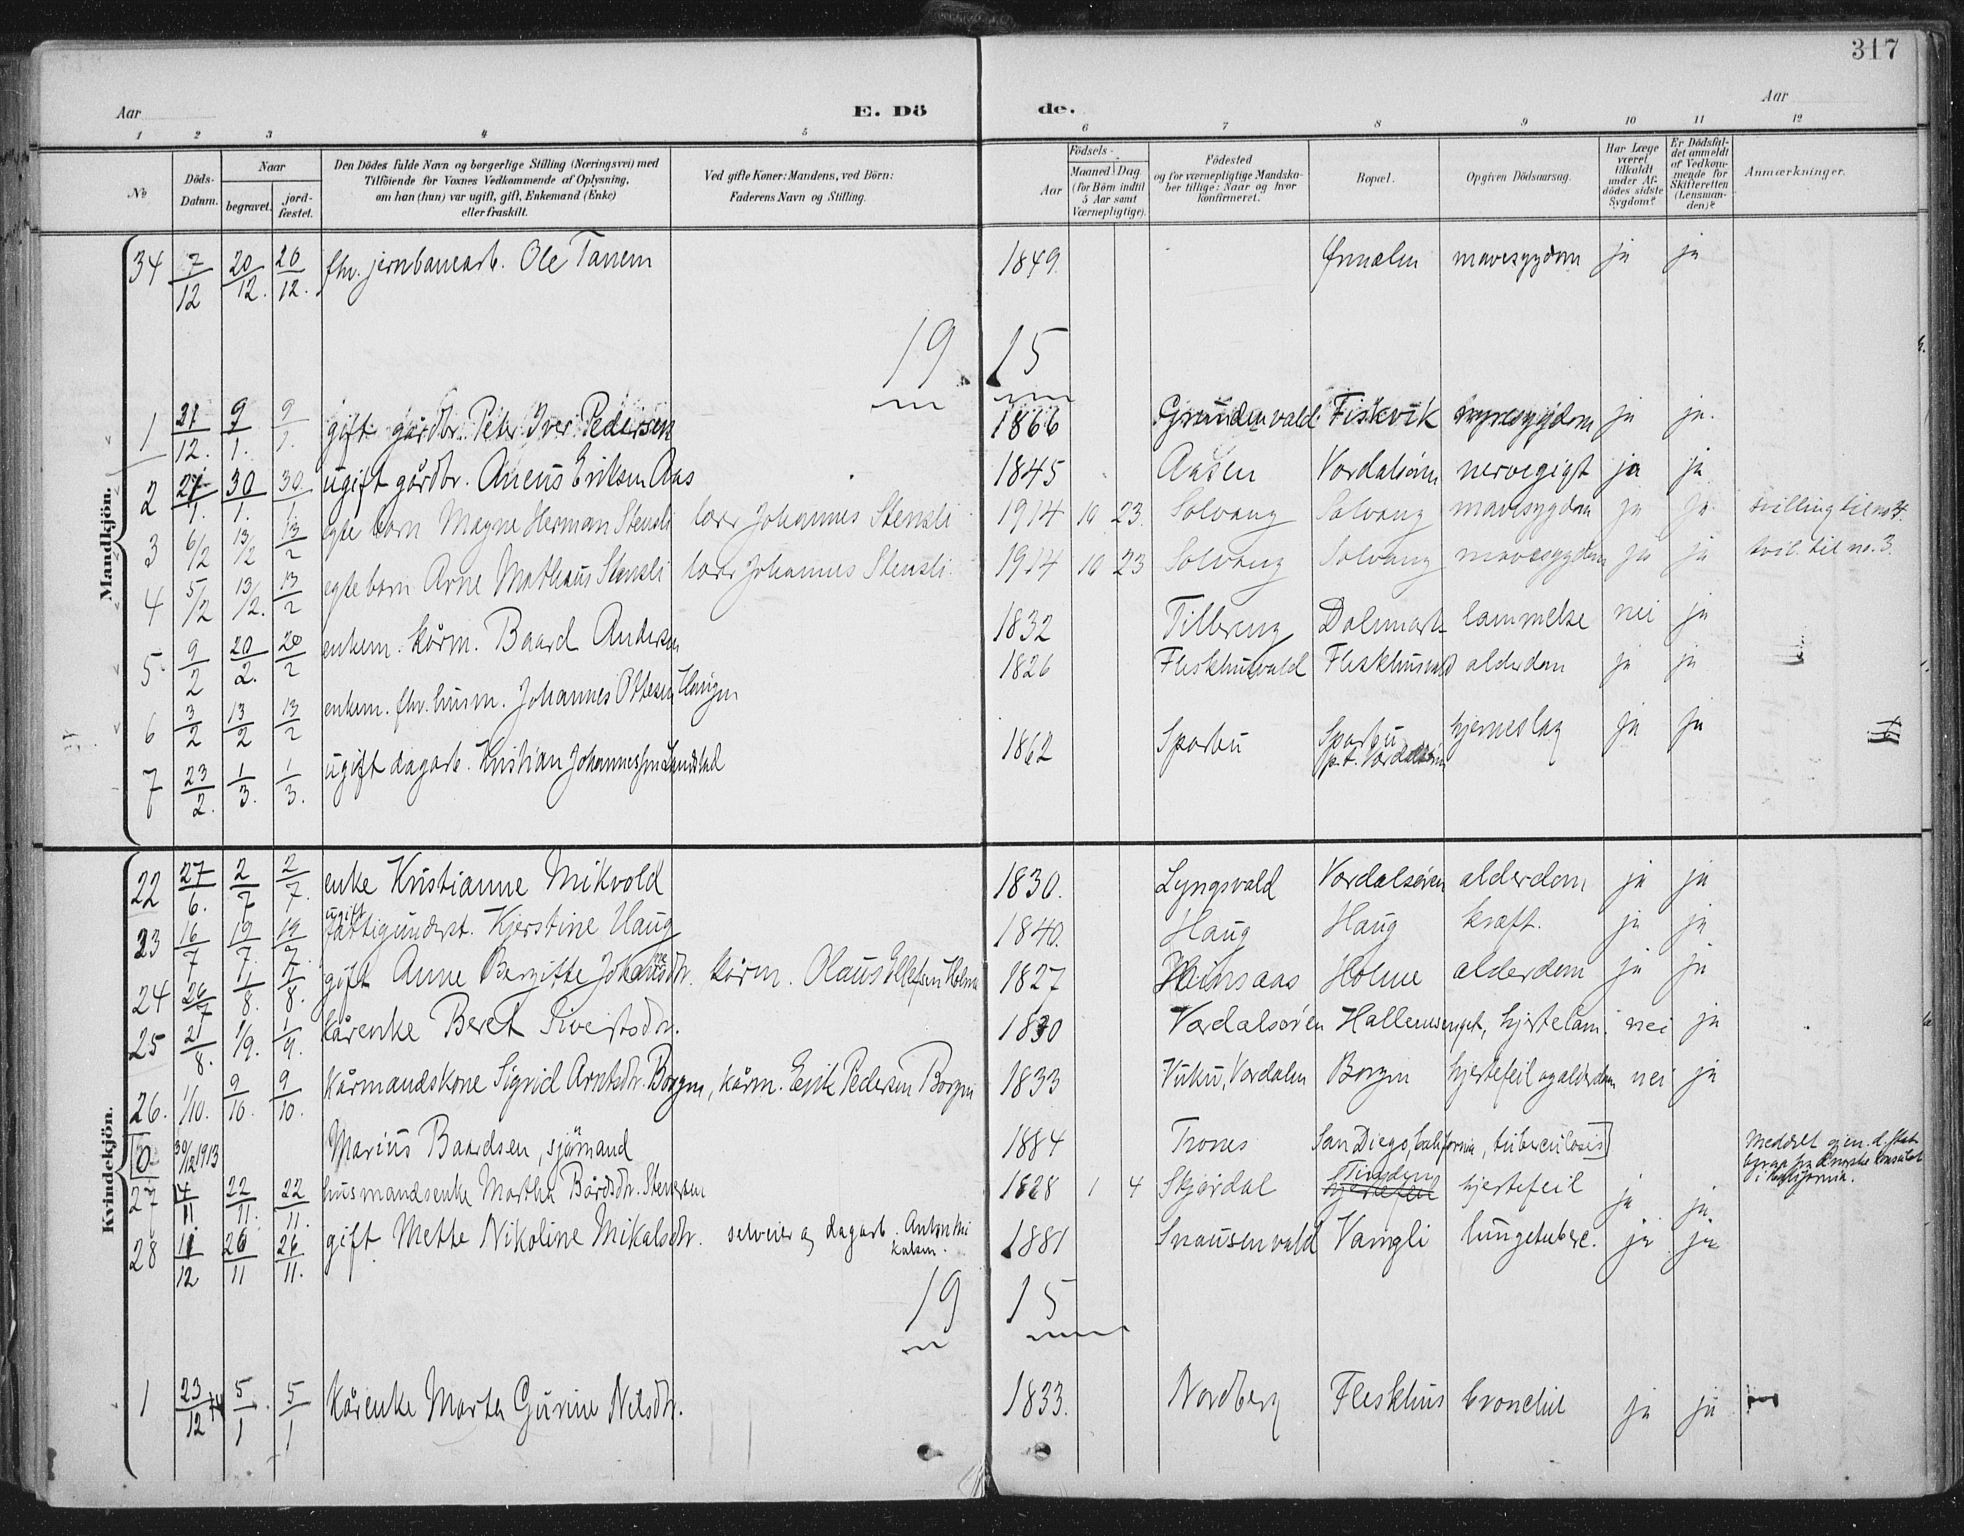 317
Aar
E. Dö de.
Aar
1 2 3 4 5 6 7 8 9 10 11 12
№
Döds-Datum.
Naar
begravet.
jord-fæstet.
Den Dödes fulde Navn og borgerlige Stilling (Næringsvei) med
Tilföiende for Voxnes Vedkommende af Oplysning,
om han (hun) var ugift, gift, Enkemand (Enke)
eller fraskilt.
Ved gifte Koner: Mandens, ved Börn:
Faderens Navn og Stilling.
Födsels-
Aar
Maaned Dag
(for Börn indtil
5 Aar samt
Værnepligtige).
Födested
og for værnepligtige Mandska-
ber tillige: Naar og hvor
konfirmeret.
Bopæl.
Opgiven Dödsaarsag.
Har Læge
været
tilkaldt
under Af-
dödes sidste
Sygdom?
Er Dödsfal-
det anmeldt
af Vedkom-
mende for
Skifteretten
(Lensman-
den)?
Anmærkninger.
Mandkjön.
34 7/12 20/12. 20/12. fhv. jernbanearb. Ole Tanem 1849. mavesygdom ja ja
19 15
1 31/12. 9/1. 9/1. gift gårdbr. Peter Iver Pedersen 1866 Grundenvald Fiskvik nyresygdom ja ja.
2 27/1. 30/1. 30/1. ugift gårdbr. Aneus Eriksen Aas 1845 Aasen Værdalsøren nervegigt ja ja
3 6/2 13/2 13/2 egte barn Magne Herman Stensli lærer Johannes Stensli 1914 10 23. Solvang Solvang mavesygdom ja ja tvilling til no 4.
4 5/2 13/2. 13/2 egte barn Arne Mathæus Stensli lærer Johannes Stensli. 1914 10 23 Solvang Solvang mavesygdom ja ja tvil. til no. 3.
5. 9/2 20/2. 20/2 enkem. kårm. Baard Andersen 1832 Tillereng Dalemark lammelse nei ja
6 3/2 13/2 13/2 enkem. fhv. husm. Johannes Ottesen Haugen 1826 Fleskhusvald Fleskhusvald alderdom ja ja
7 23/2. 1/3. 1/3. ugift dagarb. Kristian Johannessen Landstad 1862 Sparbu Sparbu p.t. Værdalsøren hjerneslag ja ja
Kvindekjön.
22 27/6. 2/7 2/7. enke Kristianne Mikvold 1830. Lyngsvald Værdalsøren alderdom ja ja
23 16/7 19/7. 19/7. ugift fattigunderst. Kjerstine Haug 1840. Haug Haug kræft. ja ja
24 26/7 1/8. 1/8. gift Anne Bergitte Johannesdr. kårm. Olaus Ellefsen Holme 1827 Holme alderdom ja ja
25 21/8. 1/9. 1/9. kårenke Beret Sivertsdr. 1830 Værdalsøren Hallemsenget, hjertelam. nei ja
26. 1/10. 9/10. 9/10. kårmandskone Sigrid Arntsdr. Borgen, kårm. Erik Pedersen Borgen 1833 Vuku, Værdalen Borgen hjertefeil og alderdom nei ja
0 30/12 1913 Marius Baardsen, sjömand 1884 Trones San Diego, California, tuberculoses] Meddelt gjen. d. stat. byraa fra d. norske konsulat i Kalifornia.
27 4/11 22/11. 22/11. husmandsenke Martha Bårdsdr. Stenersen 1828 1 4 Skjørdal hjertefeil hjertefeil ja ja
28 11/12 26/11 26/11. gift Mette Nikoline Mikalsdr. selveier og dagarb. Anton Mikalsen. 1881 Snausenvald Vangli lungetuberc. ja ja
19 15
1 23/12 14 5/1 5/1 kårenke Marta Gurine Nilsdtr. 1833. Nordberg Fleskhus bronchit ja ja